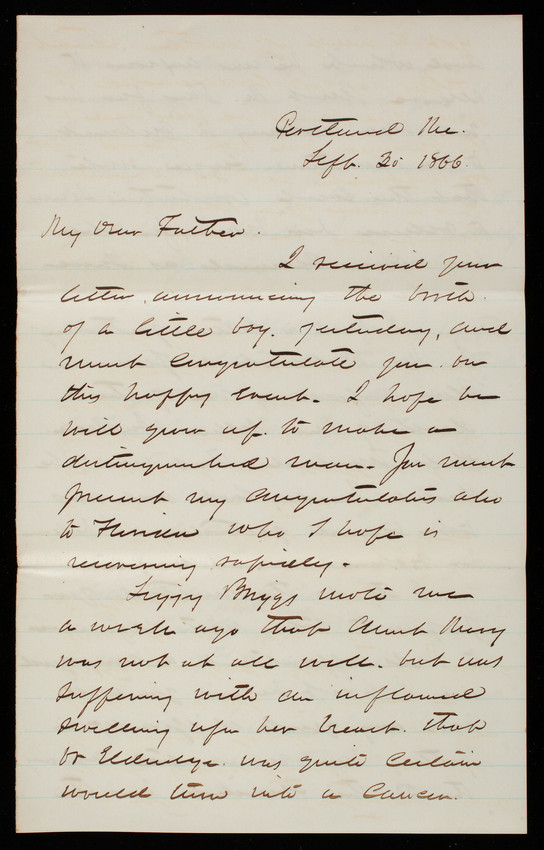 Portland Me.
Sept. 30 1866.
My Dear Father.
I received your
letter, announcing the birth
of a little boy. yesterday, and
must congratulate you on
this happy event. I hope he
will grow up to make a
distinguished man. You must
present my congratulations also
to who I hope is
recovering rapidly.
Lizzy Briggs wrote me
a week ago that Aunt Mary
was not at all well. but was
suffering with an inflamed
swelling upon her breast. that
Dr Eldredge was quite certain
would turn into a Cancer.